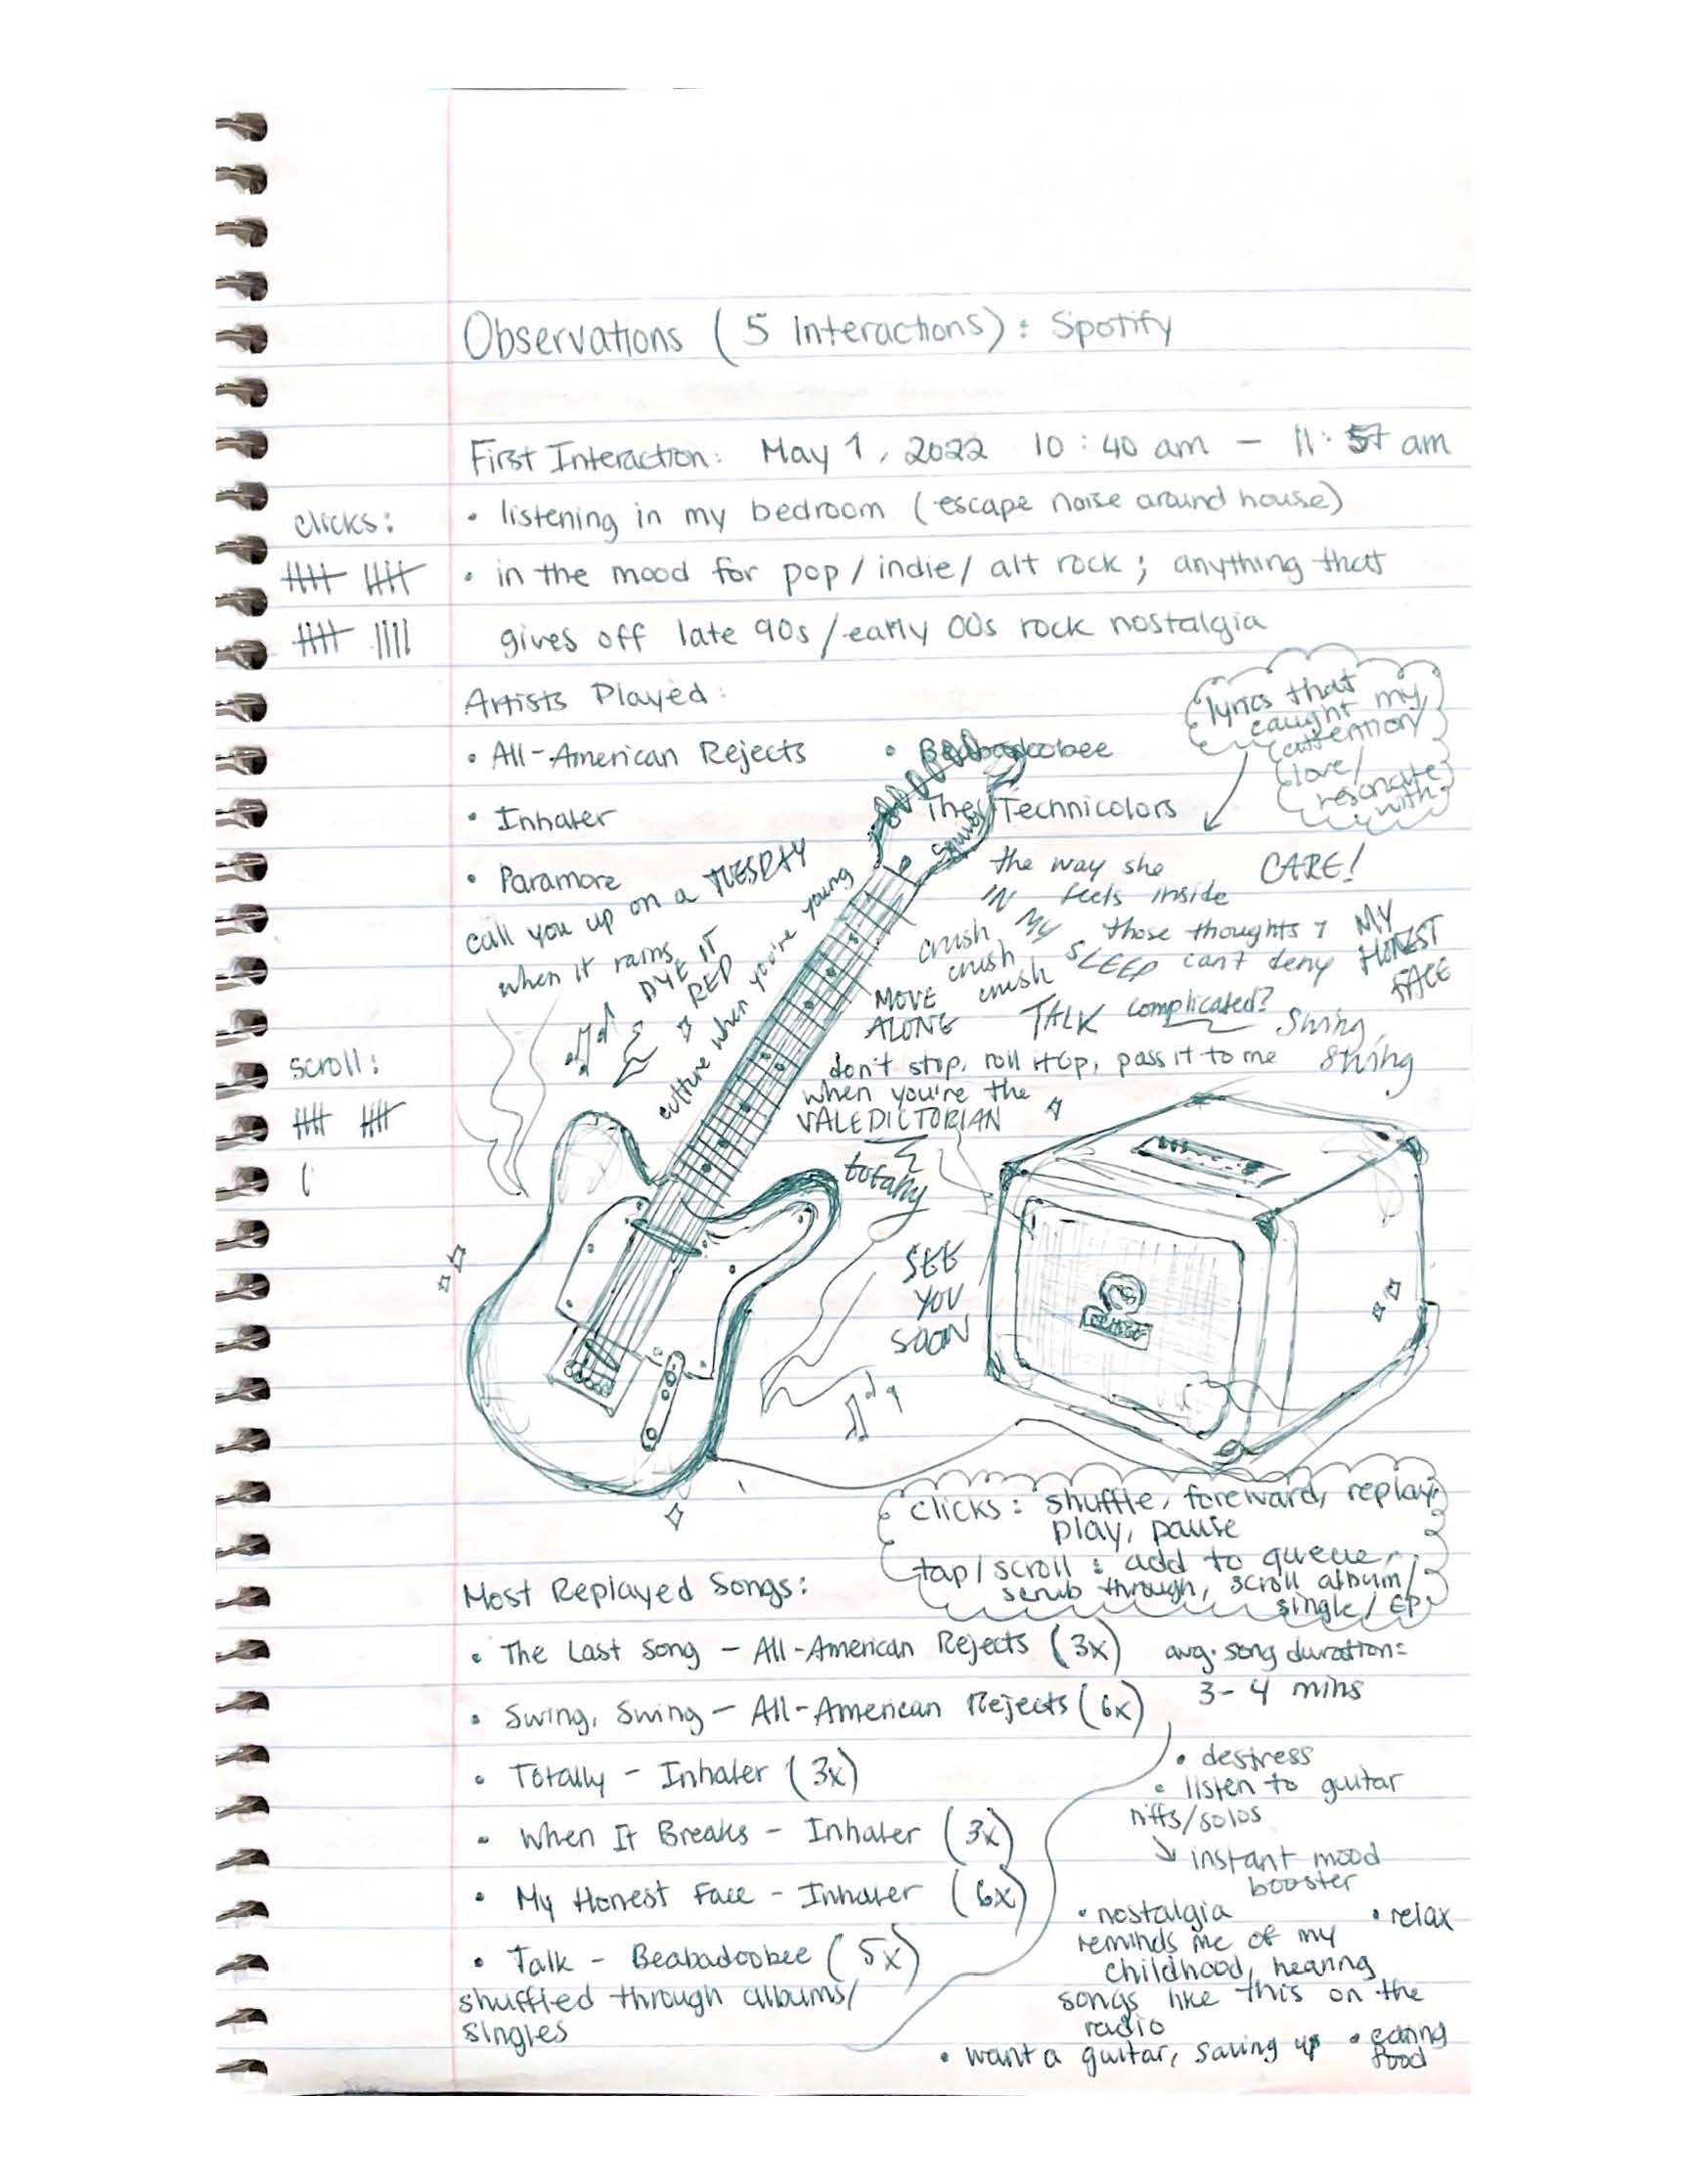 Observations (5 Interactions): Spotify
First Interaction: May 1, 2022 10:40 am - 11:57 am
clicks:
• listening in my bedroom (escape noise around house)
• in the mood for pop/indie/alt rock; anything that
gives off late 90s/early 00s rock nostalgia
Artists Played:
• All-American Rejects
• Beabadoobee
• Inhaler
The Technicolors
• Paramore
lyrics that
caught my
attention/
love/
resonate
with
call you up on a TUESDAY
when it rains
DYE IT
RED
culture when you're young
Squier
the way she
feels inside
CARE!
IN MY SLEEP
crush
crush
crush
those thoughts I
can't deny
MY
HONEST
FACE
MOVE
ALONG
TALK
complicated?
Swing,
swing
don't stop, roll it up, pass it to me
when you're the
VALEDICTORIAN
totally
SEE
YOU
SOON
scroll:
clicks: shuffle, foreward, replay,
play, pause
tap/scroll: add to queue,
scrub through, scroll album/
single/EP
Most Replayed Songs:
• The Last Song - All-American Rejects (3x)
• Swing, Swing - All-American Rejects (6x)
• Totally - Inhaler (3x)
• When It Breaks - Inhaler (3x)
• My Honest Face - Inhaler (6x)
• Talk - Beabadoobee (5x)
shuffled through albums/
singles
avg. song duration:
3-4 mins
• destress
• listen to guitar
riffs/solos
↘ instant mood
booster
• nostalgia
reminds me of my
childhood, hearing
songs like this on the
radio
• relax
• want a guitar, saving up
• eating
food